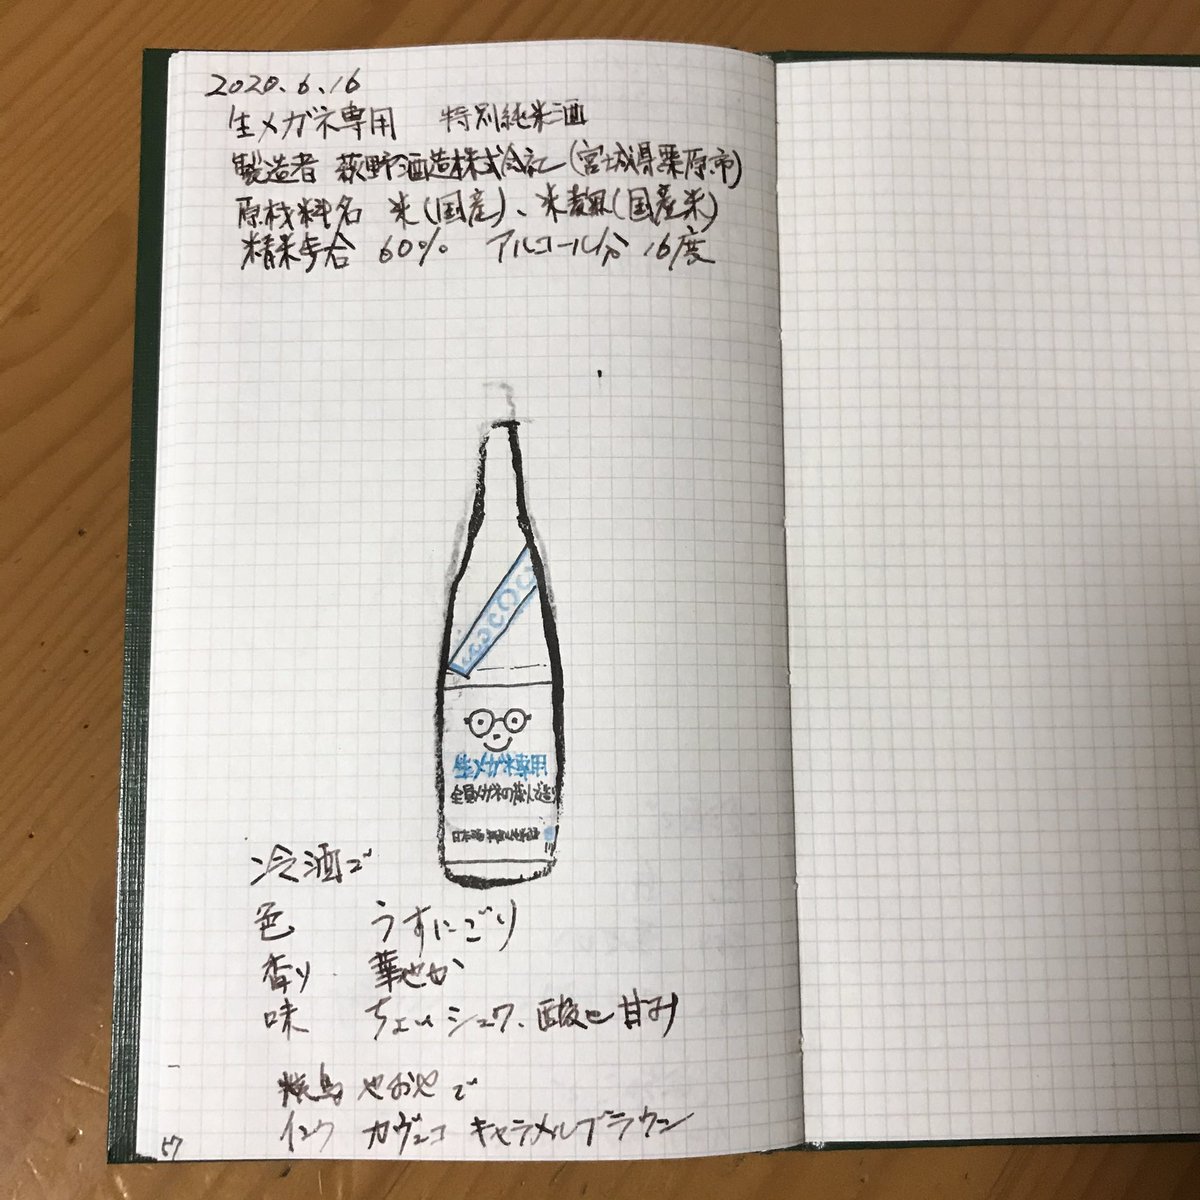 2020.6.16
生メガネ専用 特別純米酒
製造者 萩野酒造株式会社(宮城県栗原市)
原材料名 米(国産)、米麹(国産米)
精米歩合 60% アルコール分 16度
メガネ専用
全員メガネの蔵人で造
日本酒
冷酒で
色 うすにごり
香り 華やか
味 ちょいシュワ、酸と甘み
焼鳥 やおやで
インク カヴェコ キャラメルブラウン
57